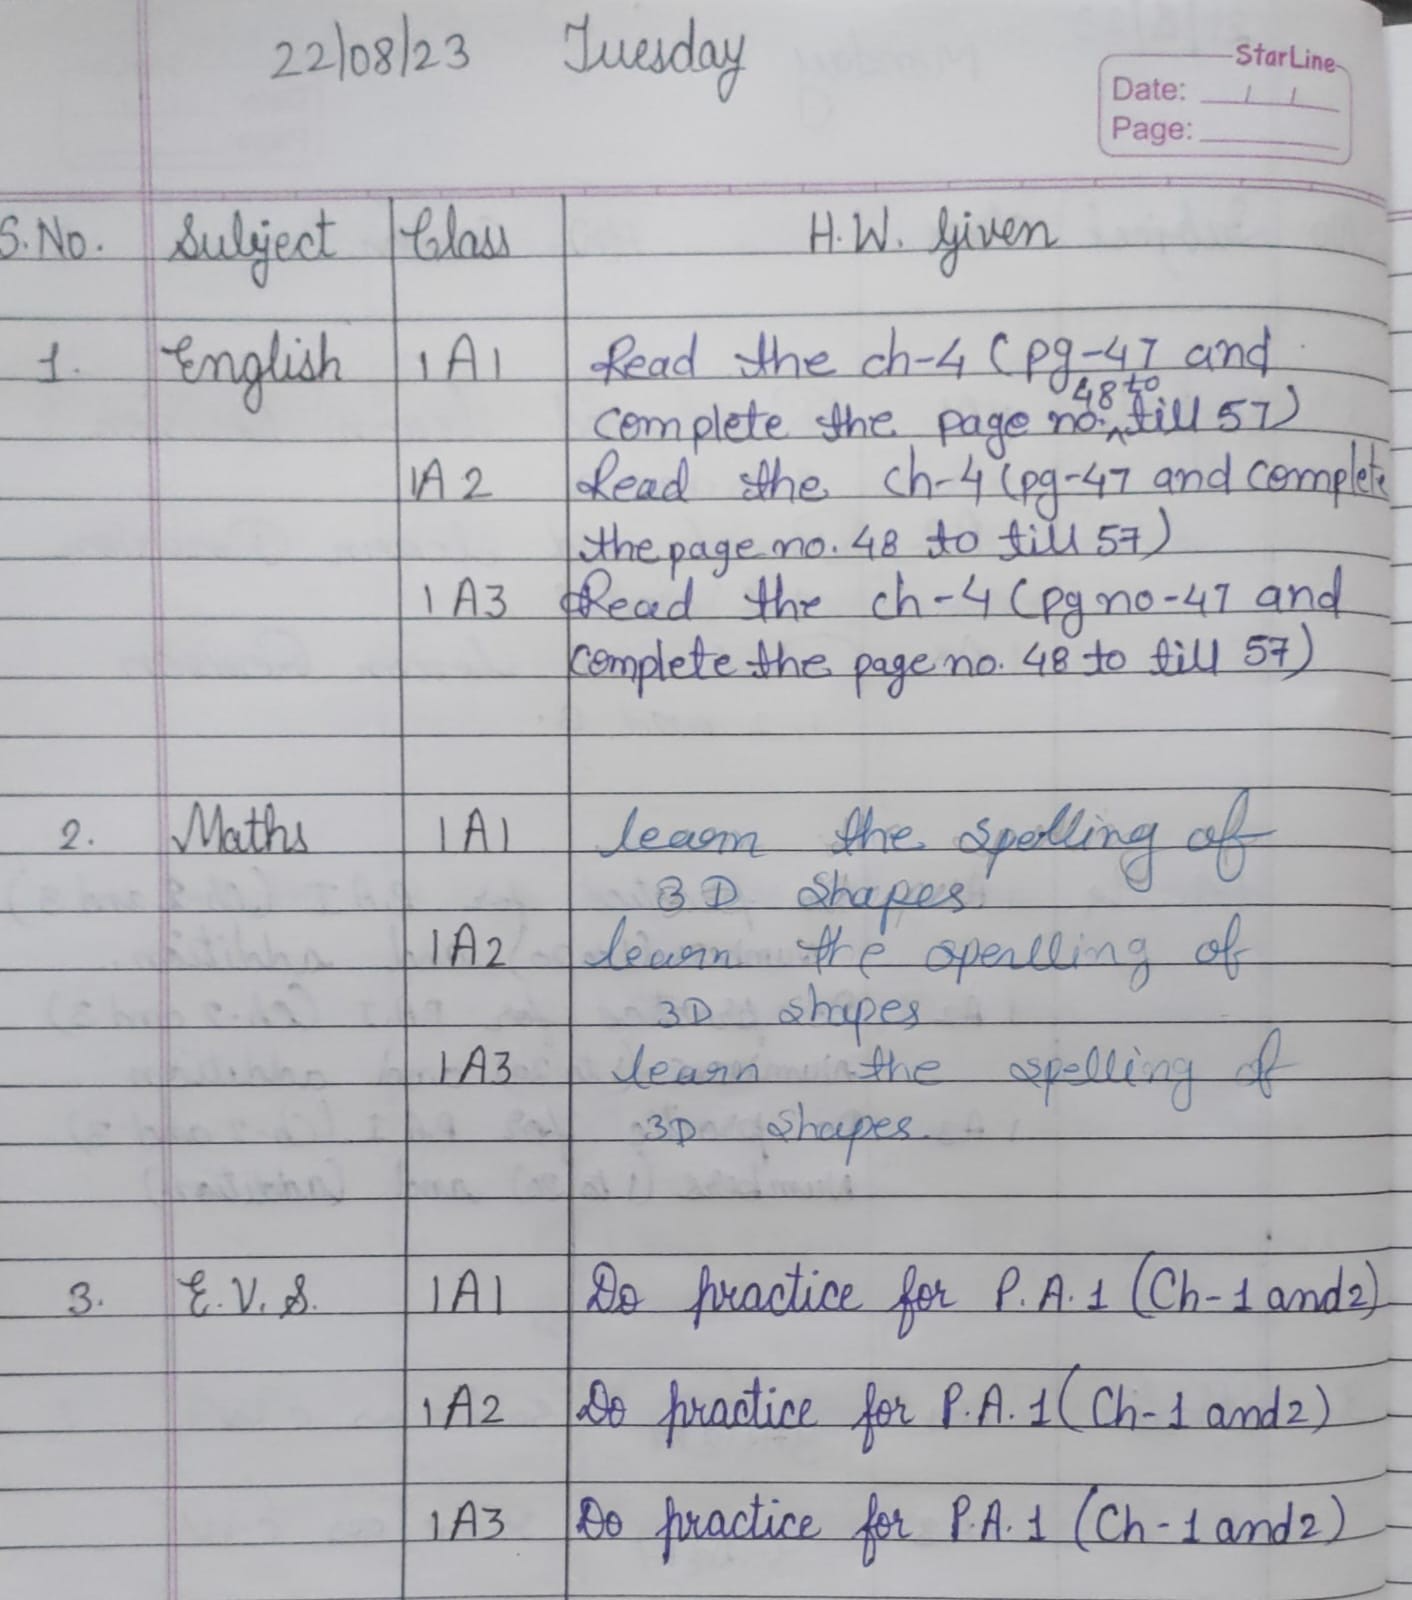 22/08/23 Tuesday
StarLine
Date: / /
Page:
S.No. Subject Class H.W. Given
1. English 1A1 Read the ch-4 (pg-47 and
48 to
complete the page no. ^ till 57)
1A2 Read the ch-4 (pg-47 and complete
the page no. 48 to till 57)
1A3 Read the ch-4 (pg no-47 and
complete the page no. 48 to till 57)
2. Maths 1A1 learn the spelling of
3D Shapes.
1A2 learn the sperlling of
3D shapes
1A3 learn the spelling of
3D shapes.
3. E.V.S. 1A1 Do practice for P.A.1 (Ch-1 and 2)
1A2 Do practice for P.A.1 (Ch-1 and 2)
1A3 Do practice for P.A.1 (Ch-1 and 2)